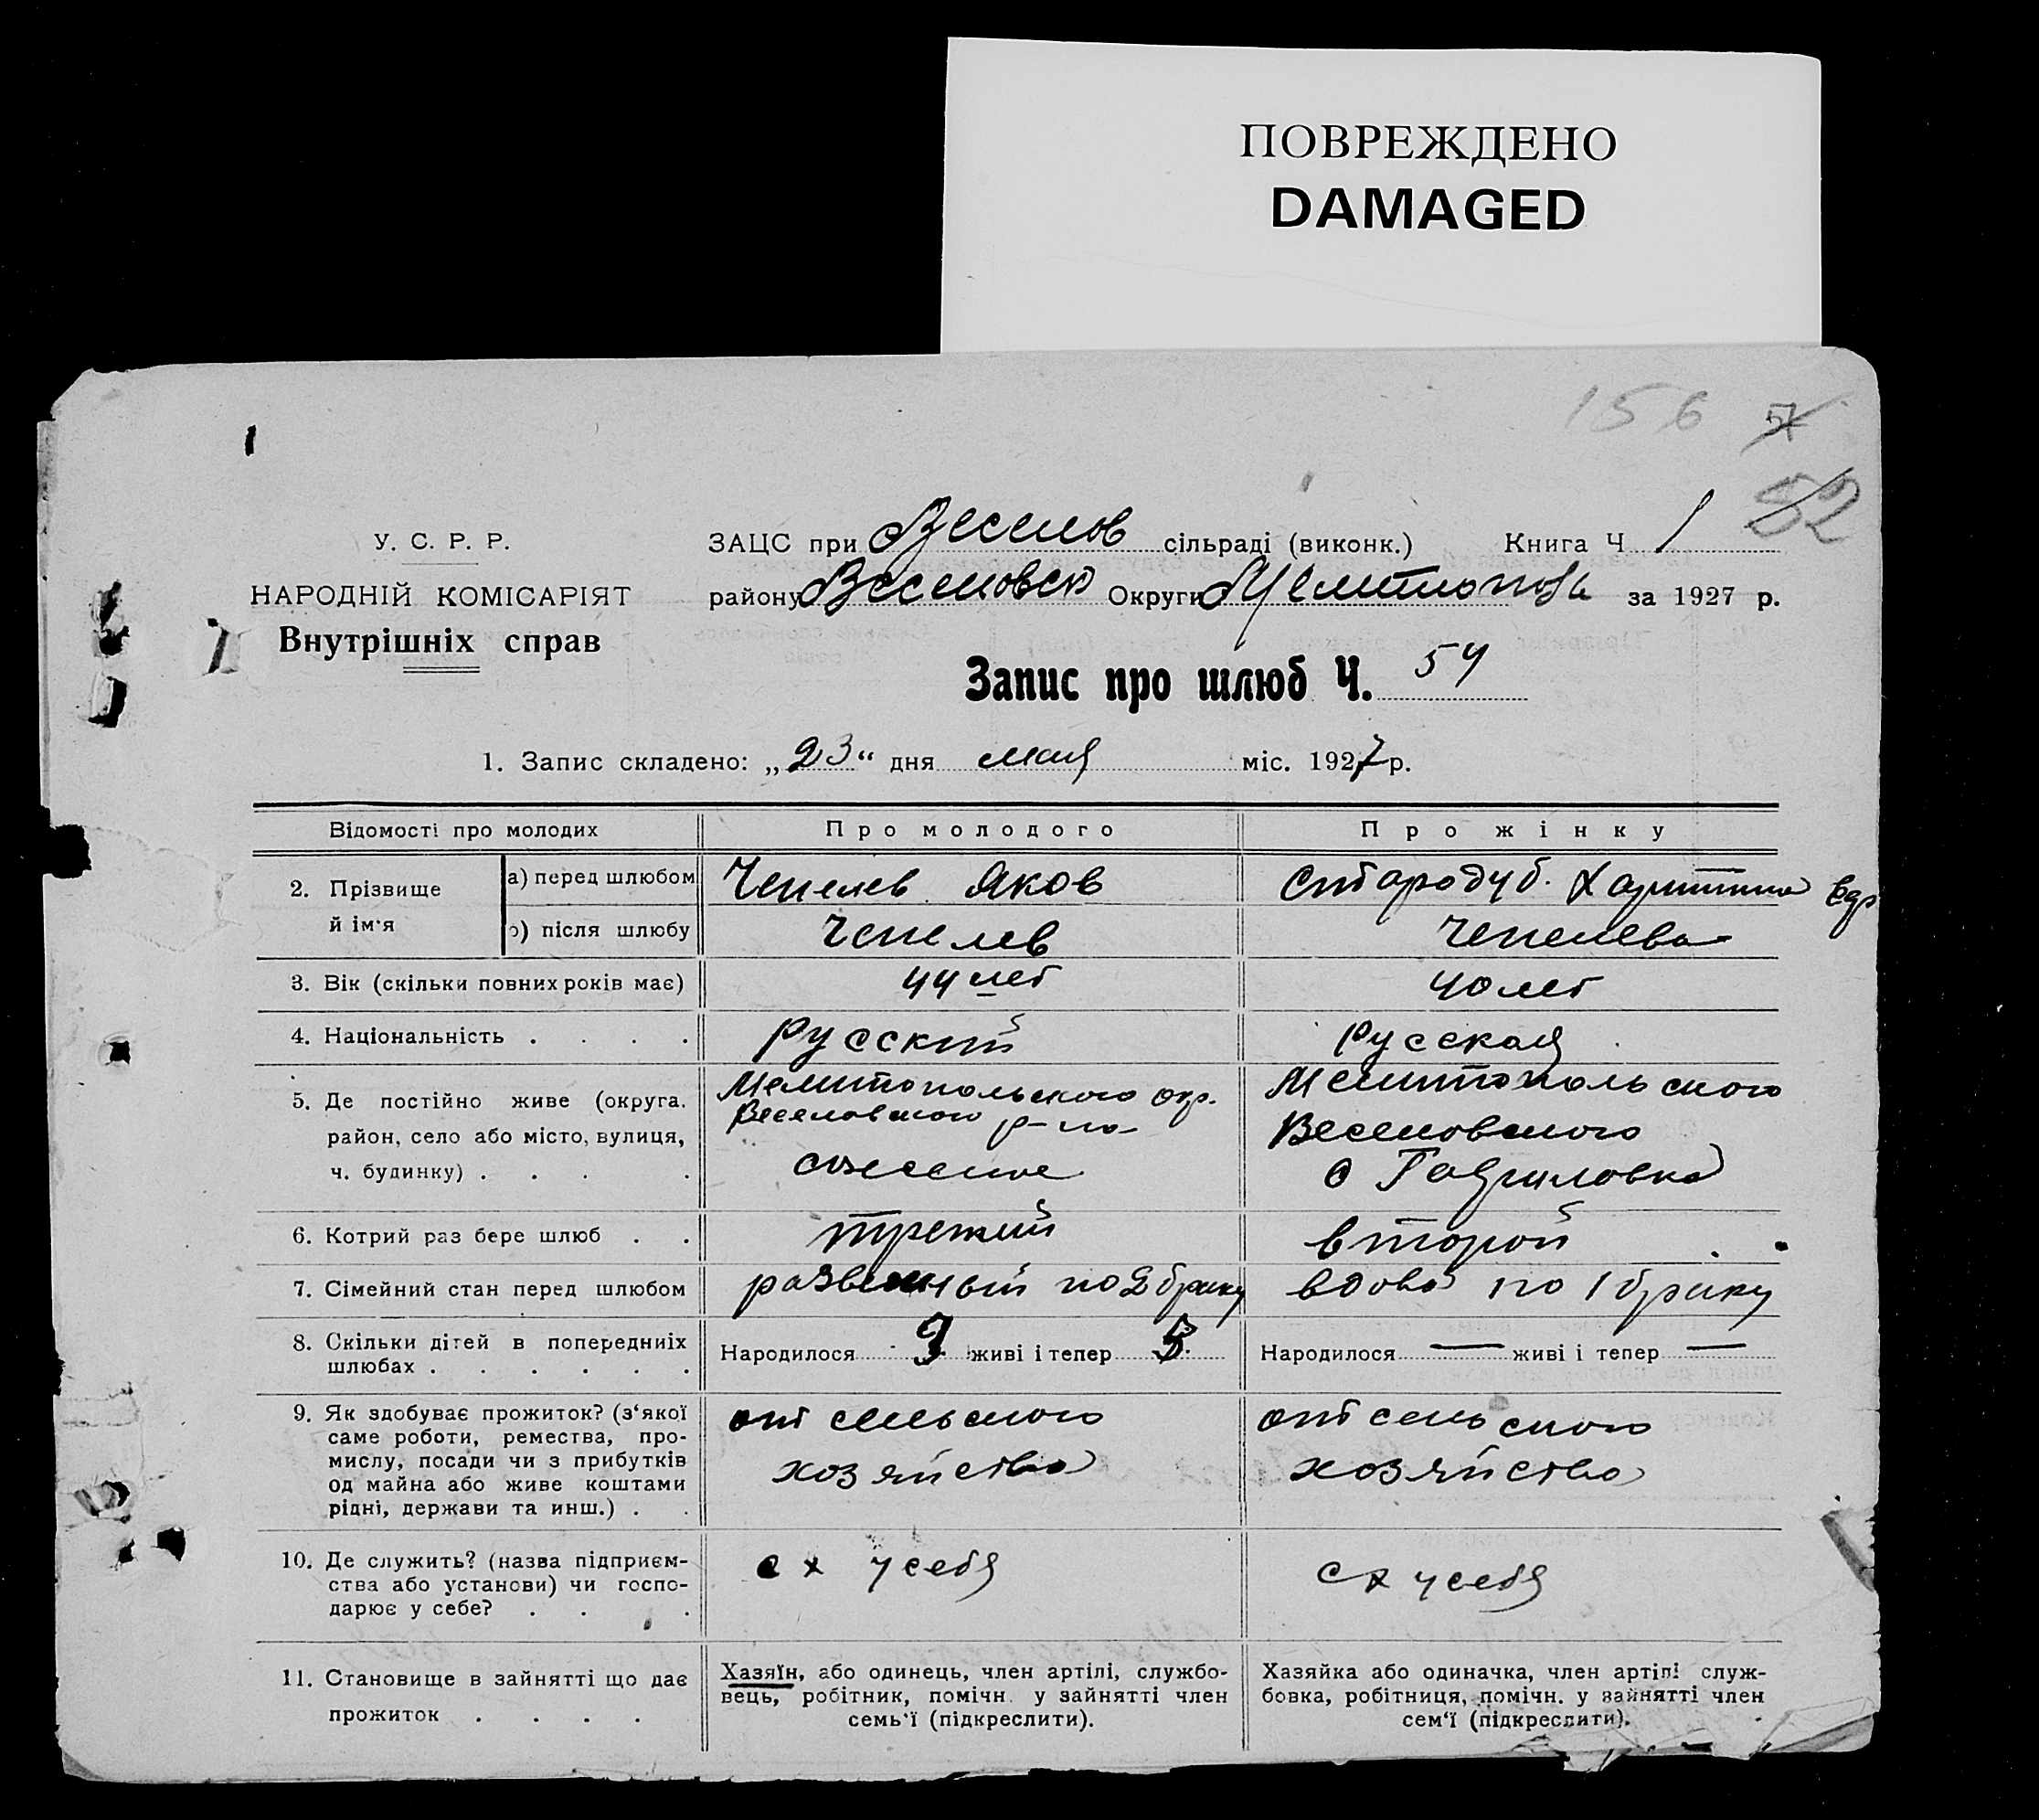 ПОВРЕЖДЕНО
DAMAGED
156
52
У. С. Р. Р.
НАРОДНІЙ КОМІСАРІЯТ
Внутрішніх справ
ЗАЦС при Веселов сільраді (виконк.) Книга Ч 1
району Веселовск Округи Мелитопол за 1927 р.
Запис про шлюб Ч. 54
1. Запис складено: „23“ дня мая міс. 1927 р.
Відомості про молодих Про молодого Про жінку
2. Прізвище й ім'я
а) перед шлюбом Чепелев Яков Стародуб. Харитина
б) після шлюбу Чепелев Чепелева
3. Вік (скільки повних років має) 44 лет 40 лет
4. Національність . . . . русский русская
5. Де постійно живе (округа.
район, село або місто, вулиця,
ч. будинку) . . . .
Мелитопольского окр.
Веселовского р-на
Мелитопольского
Веселовского
с Гавриловка
6. Котрий раз бере шлюб . . третий второй
7. Сімейний стан перед шлюбом разведеный по 2 браку вдова по 1 браку
8. Скільки дітей в попередниіх
шлюбах . . . . . .
Народилося 3 живі і тепер 3. Народилося — живі і тепер —
9. Як здобуває прожиток? (з‘якої
саме роботи, ремества, про-
мислу, посади чи з прибутків
од майна або живе коштами
рідні, держави та инш.) . .
от сельского
хозяйства
от сельского
хозяйства
10. Де служить? (назва підприєм-
ства або установи) чи госпо-
дарює у себе? . . .
с х у себя
с х у себя
11. Становище в зайнятті що дає
прожиток . . . .
Хазяїн, або одинець, член артілі, службо-
вець, робітник, помічн. у зайнятті член
семь‘ї (підкреслити).
Хазяйка або одиначка, член артілі служ-
бовка, робітниця, помічн. у зайнятті член
сем‘ї (підкреслити).